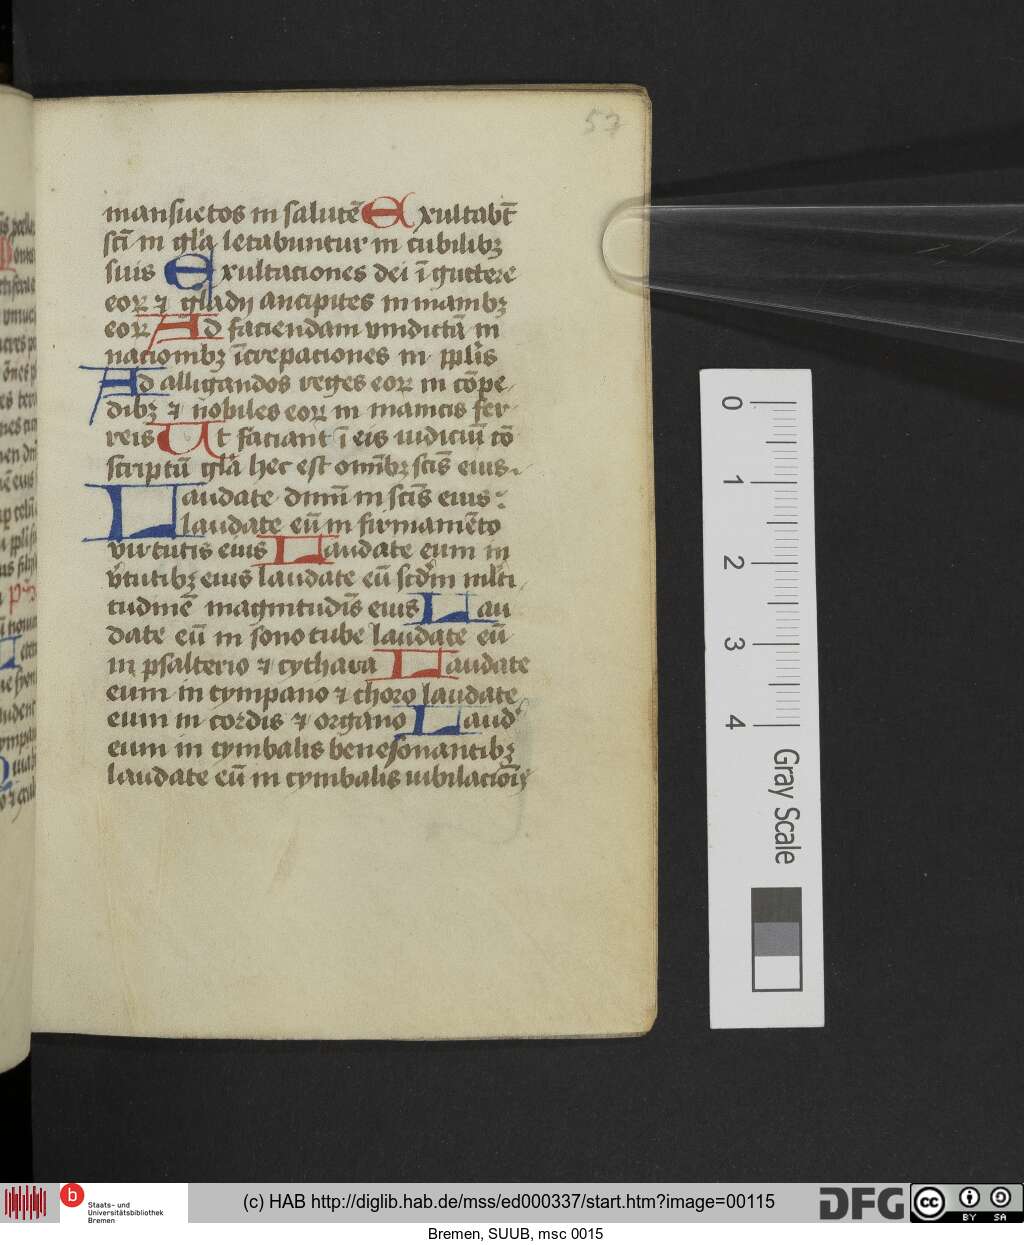 57
mansuetos in salutē Exultabt̄
scī in glā letabuntur in cubilibꝫ
suis Exultationes dei ī gutture
eoꝝ ⁊ gladij ancipites in manibꝫ
eoꝝ Ad faciendam vindictā in
nacionibꝫ īcrepaciones in ppl̄is
Ad alligandos reges eoꝝ in cōpe
dibꝫ ⁊ nobiles eoꝝ in manicis fer
reis Ut faciant ī eis iudiciū cō
scriptū glā hec est omībꝫ scīs eius
Laudate dnm̄ in scīs eius
laudate eū in firmamēto
virtutis eius Laudate eum in
v̄tutibꝫ eius laudate eū scdm̄ mlti
tudinē magnitudīs eius Lau
date eū in sono tube laudate eū
in psalterio ⁊ cythara Laudate
eum in tympano ⁊ choro laudate
eum in cordis ⁊ organo Laud
eum in cymbalis benesonantibꝫ
laudate eū in cymbalis iubilacōīs
0
1
2
3
4
Gray Scale
b
Staats- und
Universitätsbibliothek
Bremen
(c) HAB http://diglib.hab.de/mss/ed000337/start.htm?image=00115
DFG
cc
BY SA
Bremen, SUUB, msc 0015